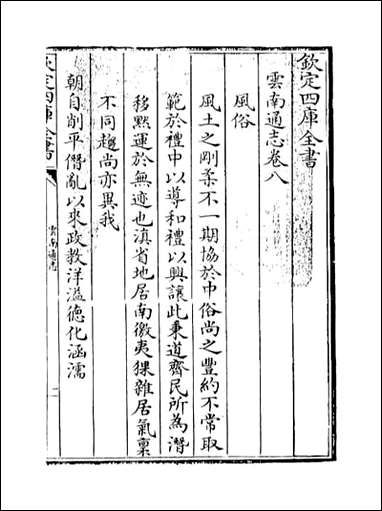 欽定四庫全書
雲南通志卷八
風俗
風土之剛柔不一期協於中俗尚之豐約不常取
範於禮中以導和禮以興讓此秉道齊民所為潛
移黙運於無迹也滇省地居南徼夷猓雜居氣稟
不同趨尚亦異我
朝自削平僭亂以來政教洋溢德化涵濡
欽定四庫全書
雲南通志